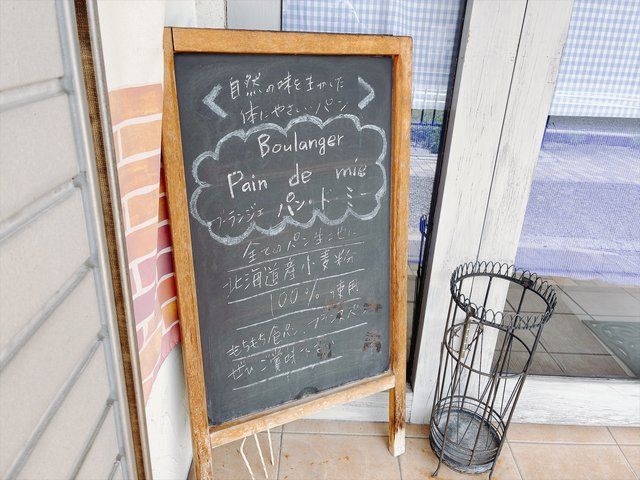 自然の味を生かした
体にやさしいパン
Boulanger
Pain de mie
ブーランジェ パン・ド・ミー
全てのパン生地に
北海道産小麦粉
100%使用
もちもち食パン、フランスパン
ぜひご賞味ください